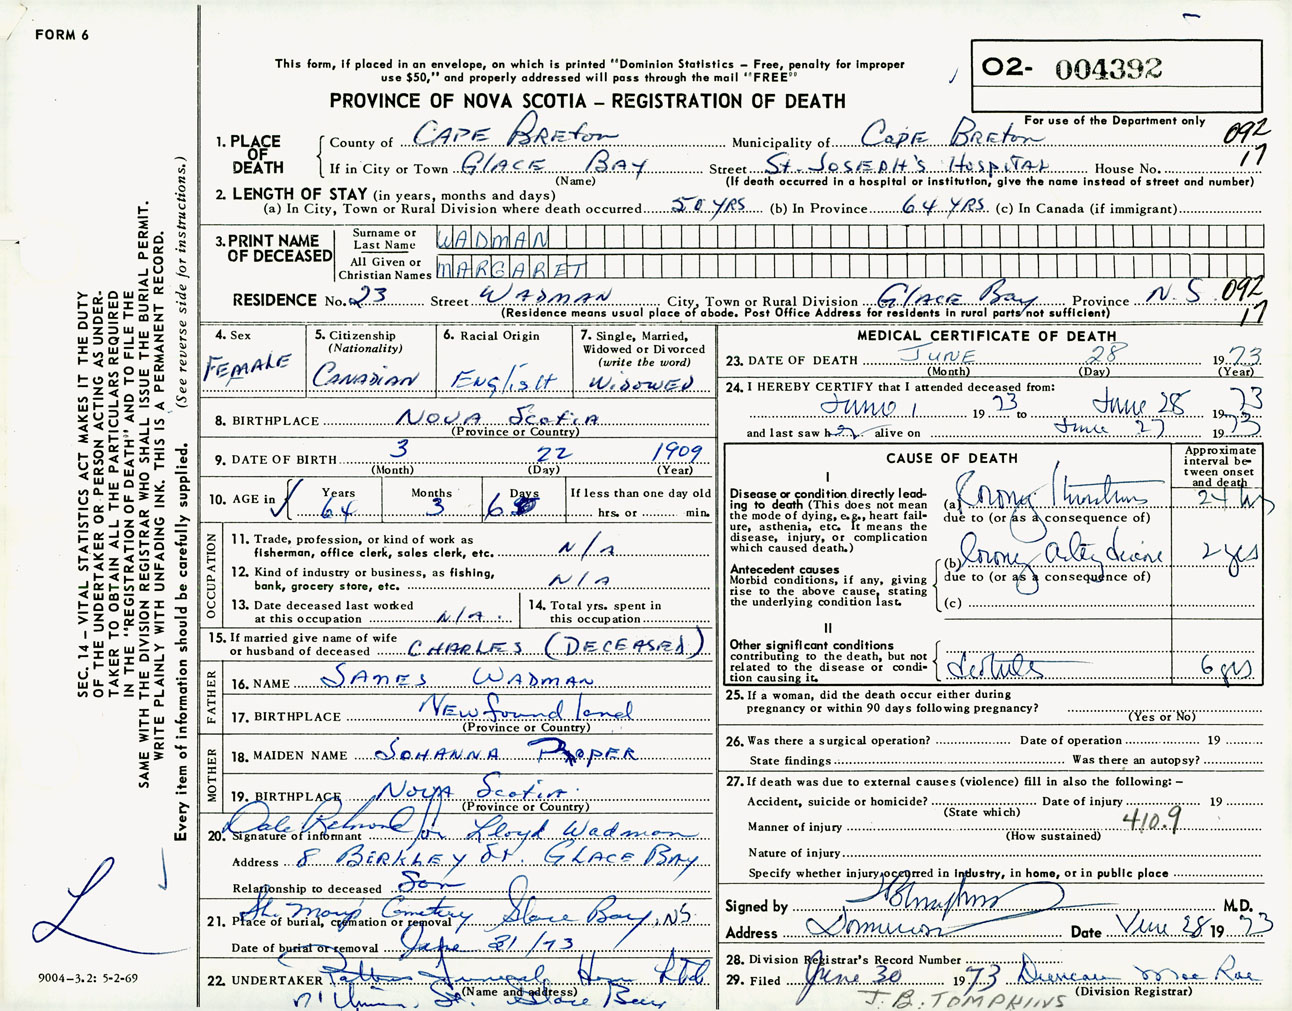 FORM 6
This form, if placed in an envelope, on which is printed "Dominion Statistics – Free, penalty for improper
use $50," and properly addressed will pass through the mail "FREE"
PROVINCE OF NOVA SCOTIA – REGISTRATION OF DEATH
02- 004392
For use of the Department only
092
17
1. PLACE OF DEATH
County of CAPE BRETON Municipality of CAPE BRETON
If in City or Town GLACE BAY Street ST. JOSEPH'S HOSPITAL House No.
(Name) (If death occurred in a hospital or institution, give the name instead of street and number)
2. LENGTH OF STAY (in years, months and days)
(a) In City, Town or Rural Division where death occurred 50 YRS (b) In Province 64 YRS (c) In Canada (if immigrant)
3. PRINT NAME OF DECEASED
Surname or Last Name WADMAN
All Given or Christian Names MARGARET
RESIDENCE No. 23 Street WADMAN City, Town or Rural Division GLACE BAY Province N.S. 092
17
(Residence means usual place of abode. Post Office Address for residents in rural parts not sufficient)
4. Sex
FEMALE
5. Citizenship
(Nationality)
CANADIAN
6. Racial Origin
ENGLISH
7. Single, Married,
Widowed or Divorced
(write the word)
WIDOWED
8. BIRTHPLACE NOVA SCOTIA
(Province or Country)
9. DATE OF BIRTH 3 22 1909
(Month) (Day) (Year)
10. AGE in
Years 64
Months 3
Days 6
If less than one day old
hrs. or min.
OCCUPATION
11. Trade, profession, or kind of work as
fisherman, office clerk, sales clerk, etc. N/A
12. Kind of industry or business, as fishing,
bank, grocery store, etc. N/A
13. Date deceased last worked
at this occupation N/A
14. Total yrs. spent in
this occupation
15. If married give name of wife
or husband of deceased CHARLES (DECEASED)
FATHER
16. NAME JAMES WADMAN
17. BIRTHPLACE Newfoundland
(Province or Country)
MOTHER
18. MAIDEN NAME JOHANNA
19. BIRTHPLACE NOVA SCOTIA
(Province or Country)
Dale for Lloyd Wadman
20. Signature of informant
Address 8 BERKLEY ST. GLACE BAY
Relationship to deceased Son
Cemetery Glace Bay, NS
21. Place of burial, cremation or removal
Date of burial or removal /73
22. UNDERTAKER Home Ltd
(Name and address)
St. Glace Bay
MEDICAL CERTIFICATE OF DEATH
23. DATE OF DEATH JUNE 28 1973
(Month) (Day) (Year)
24. I HEREBY CERTIFY that I attended deceased from:
June 1 1973 to June 28 1973
and last saw her alive on June 27 1973
CAUSE OF DEATH
Approximate
interval be-
tween onset
and death
I
Disease or condition directly lead-
ing to death (This does not
mean the mode of dying, e.g., heart fail-
ure, asthenia, etc. It means the
disease, injury, or complication
which caused death.)
(a) 24 hrs
due to (or as a consequence of)
(b) 2 yrs
due to (or as a consequence of)
(c)
Antecedent causes
Morbid conditions, if any, giving
rise to the above cause, stating
the underlying condition last.
II
Other significant conditions
contributing to the death, but not
related to the disease or condi-
tion causing it. 6 yrs
25. If a woman, did the death occur either during
pregnancy or within 90 days following pregnancy?
(Yes or No)
26. Was there a surgical operation? Date of operation 19
State findings Was there an autopsy?
27. If death was due to external causes (violence) fill in also the following: –
Accident, suicide or homicide? Date of injury 19
(State which)
410.9
Manner of injury
(How sustained)
Nature of injury
Specify whether injury occurred in industry, in home, or in public place
Signed by M.D.
Address Dominion Date June 28 1973
28. Division Registrar's Record Number
29. Filed June 30 1973 Duncan Mac Rae
(Division Registrar)
J. B. TOMPKINS
SEC. 14 – VITAL STATISTICS ACT MAKES IT THE DUTY
OF THE UNDERTAKER OR PERSON ACTING AS UNDER-
TAKER TO OBTAIN ALL THE PARTICULARS REQUIRED
IN THE "REGISTRATION OF DEATH" AND TO FILE THE
SAME WITH THE DIVISION REGISTRAR WHO SHALL ISSUE THE BURIAL PERMIT.
WRITE PLAINLY WITH UNFADING INK. THIS IS A PERMANENT RECORD.
Every item of information should be carefully supplied. (See reverse side for instructions.)
9004–3.2: 5-2-69